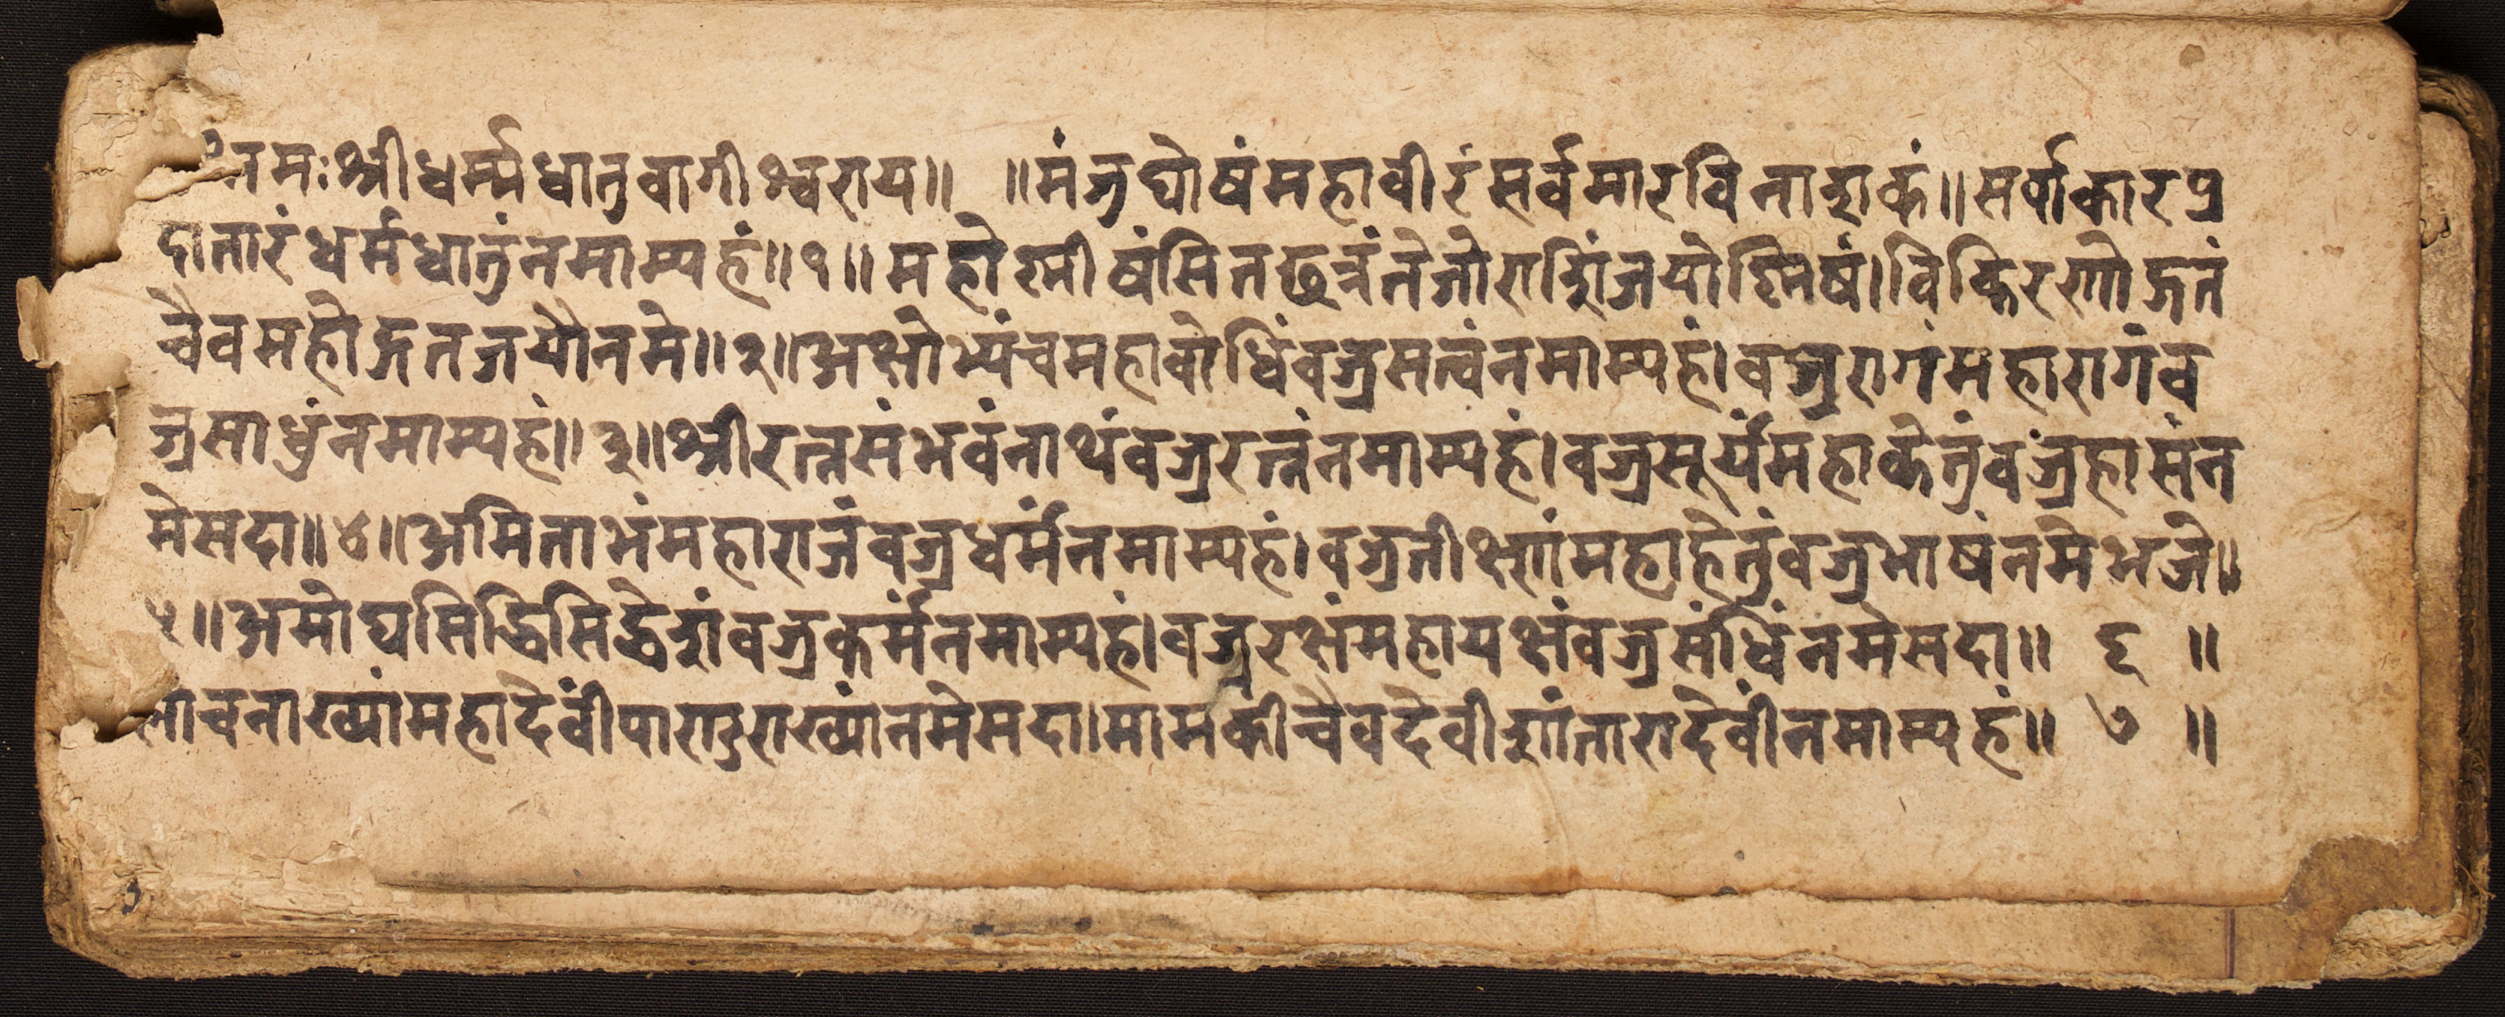 नमः श्रीधर्म्मधातुवागीश्वराय॥ ॥मंजुघोषं महावीरं सर्वमारविनाशकं॥ सर्वाकारप्र
दातारं धर्मधातुं नमाम्यहं॥१॥ महोश्नीषं सितछत्रं तेजोराशिं जयोश्निषं। विकिरणोद्गतं
चैव महोद्गतजयौ नमे॥२॥ अक्षोभ्यं च महाबोधिं वज्रसत्वं नमाम्यहं। वज्रुरागं महारागं व
ज्रसाधुं नमाम्यहं॥३॥ श्रीरत्नसंभवं नाथं वज्ररत्नं नमाम्यहं। वज्रसूर्यं महाकेतुं वज्रहासं न
मे सदा॥४॥ अमिताभं महाराजं वज्रधर्मं नमाम्यहं। वज्रतीक्ष्णं महाहेतुं वज्रभाषं नमे भजे॥
५॥ अमोघसिद्धिसिद्धेशं वज्रकर्मं नमाम्यहं। वज्ररक्षं महायक्षं वज्रसंधिं नमे सदा॥ ६ ॥
लोचनाख्यां महादेवीं पाराडुराख्यां नमे सदा। मामकी चैव देवीशां तारादेवीं नमाम्यहं॥ ७ ॥